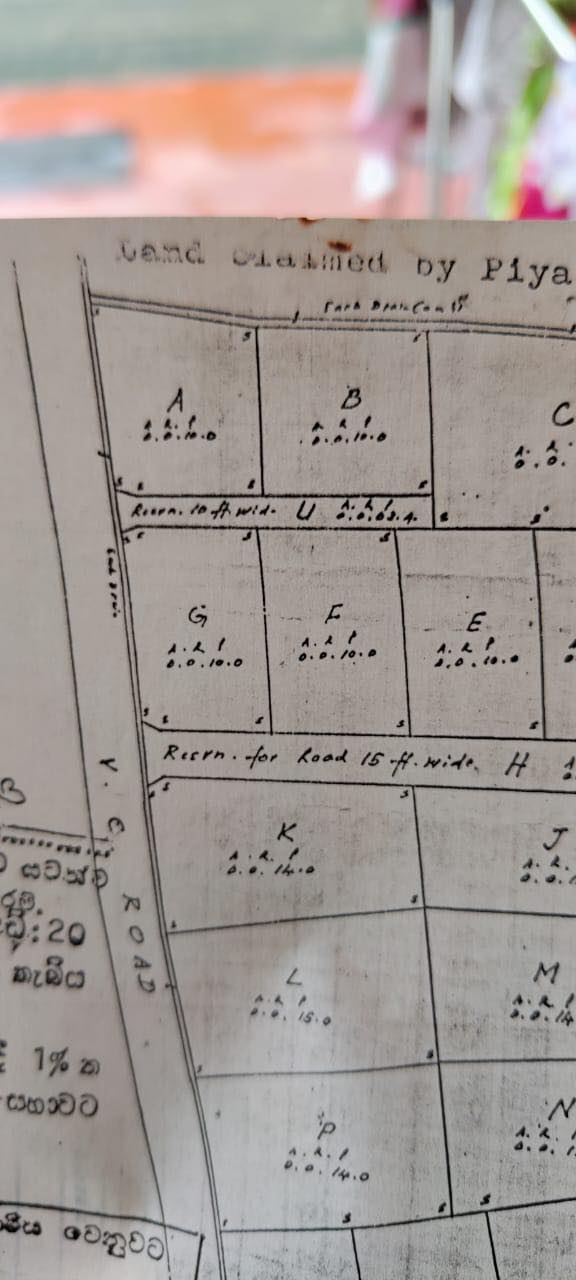 Land Claimed by Piya
A
A. R. P
0.0.10.0
B
A. R. P
0.0.10.0
C
A. R.
0.0.
Resrn. 10 ft. wide. U A. R. P
0.0.03.4.
G
A. R. P
0.0.10.0
F
A. R. P
0.0.10.0
E
A. R. P
0.0.10.0
Resrn. for Road 15 ft. wide. H
V. C. ROAD
K
A. R. P
0.0.14.0
J
A. R.
0.0.1
L
A. R. P
0.0.15.0
M
A. R.
0.0.14
P
A. R. P
0.0.14.0
N
A. R.
0.0.1
B
20
කැබිය
1% ක
සභාවට
වෙනුවට